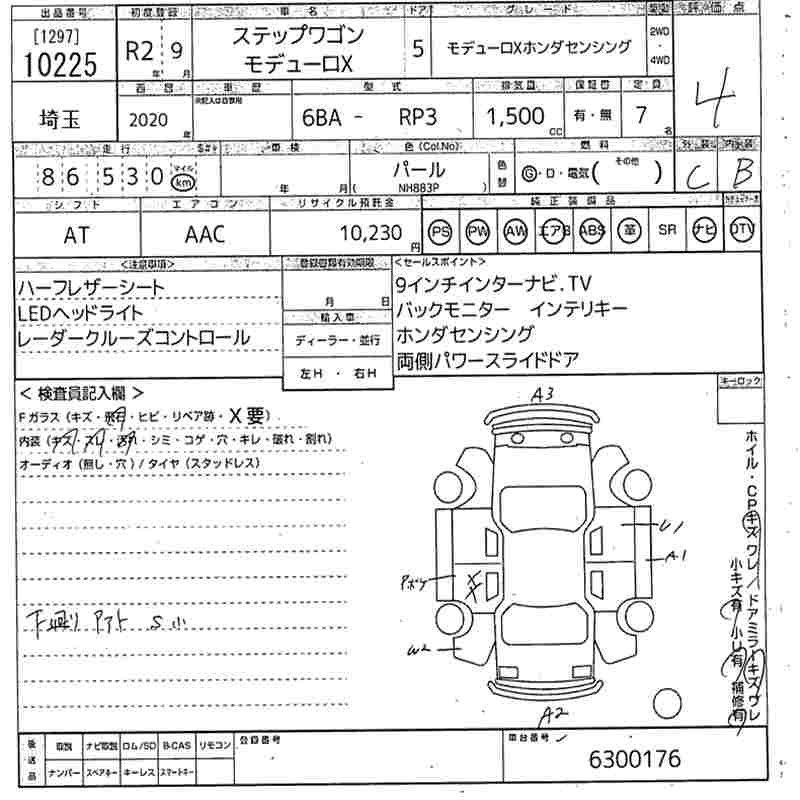 出品番号 初度登録 車名 ドア グレード 駆動 評価点
[1297]
10225
R2 9
年 月
ステップワゴン
モデューロX
5
モデューロXホンダセンシング
2WD
・
4WD
4
西暦 車歴 型式 排気量 保証書 定員
未記入は自家用
埼玉
2020 年
6BA - RP3
1,500 CC
有・無
7 名
走行 車検 色(Col.No) 燃料 外装 内装
86,530
マイル
km
年 月
パール
(NH883P)
色替
G・D・電気( その他 )
C B
シフト エアコン リサイクル預託金 純正装備品
AT AAC 10,230 円
PS PW AW エアB ABS 革 SR ナビ DTV
<注意事項>
ハーフレザーシート
LEDヘッドライト
レーダークルーズコントロール
登録書類有効期限
月 日
輸入車
ディーラー・並行
左H ・ 右H
<セールスポイント>
9インチインターナビ.TV
バックモニター インテリキー
ホンダセンシング
両側パワースライドドア
キーロック
< 検査員記入欄 >
Fガラス (キズ・飛石・ヒビ・リペア跡・X要)
内装 (キズ・スリ・汚れ・シミ・コゲ・穴・キレ・破れ・割れ)
オーディオ (無し・穴) / タイヤ (スタッドレス)
下廻り
S小
A3
U1
A1
W2
A2
ホイル・CPキズワレ/ドアミラーキズワレ
小キズ有 小U有 補修有
後送品
取説 ナビ取説 ロム/SD B-CAS リモコン
ナンバー スペアキー キーレス スマートキー
登録番号
車台番号
6300176